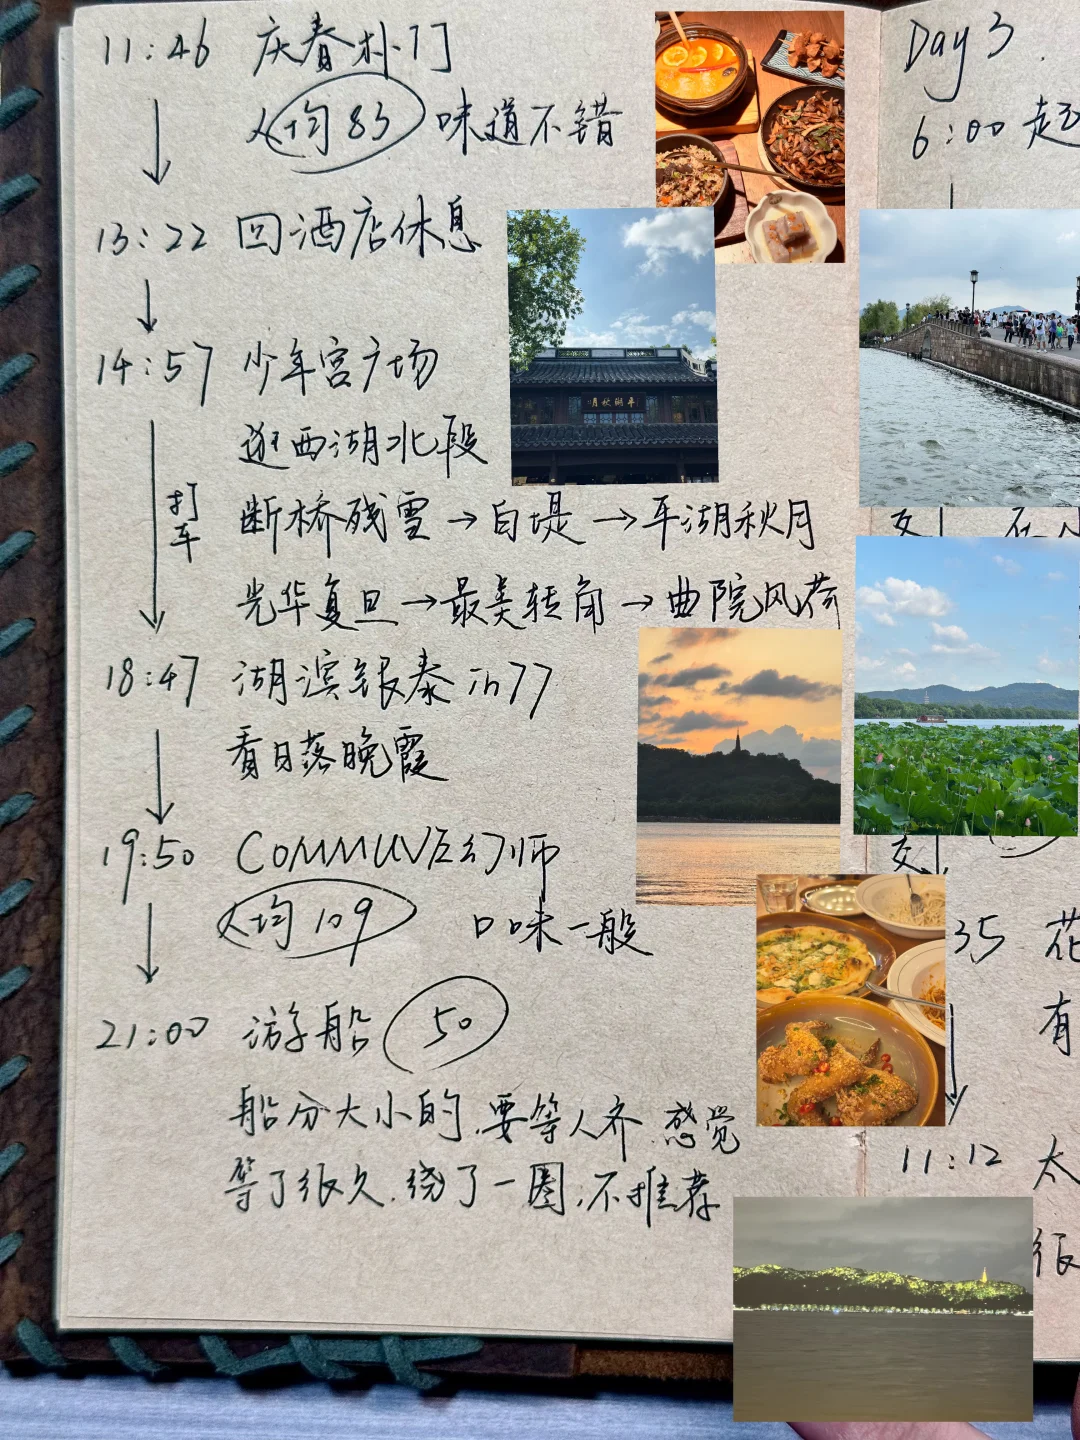 11:46 庆春朴门
人均83 味道不错
13:22 回酒店休息
14:57 少年宫广场
逛西湖北段
打车
断桥残雪→白堤→平湖秋月
光华复旦→最美转角→曲院风荷
18:47 湖滨银泰in77
看日落晚霞
19:50 COMMUNE幻师
人均109 口味一般
21:00 游船 50
船分大小的,要等人齐.感觉
等了很久.绕了一圈,不推荐
月秋湖平
Day3.
6:00 起
35 花
有
11:12 太
很